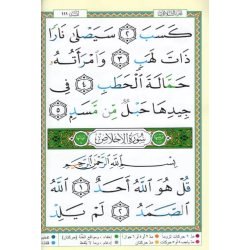 كَسَبَ ٢ سَيَصْلَىٰ نَارًا
ذَاتَ لَهَبٍ ٣ وَامْرَأَتُهُ
حَمَّالَةَ الْحَطَبِ ٤ فِي
جِيدِهَا حَبْلٌ مِّن مَّسَدٍ ٥
سُورَةُ الْإِخْلَاصِ
بِسْمِ اللَّهِ الرَّحْمَٰنِ الرَّحِيمِ
قُلْ هُوَ اللَّهُ أَحَدٌ ١ اللَّهُ
الصَّمَدُ ٢ لَمْ يَلِدْ